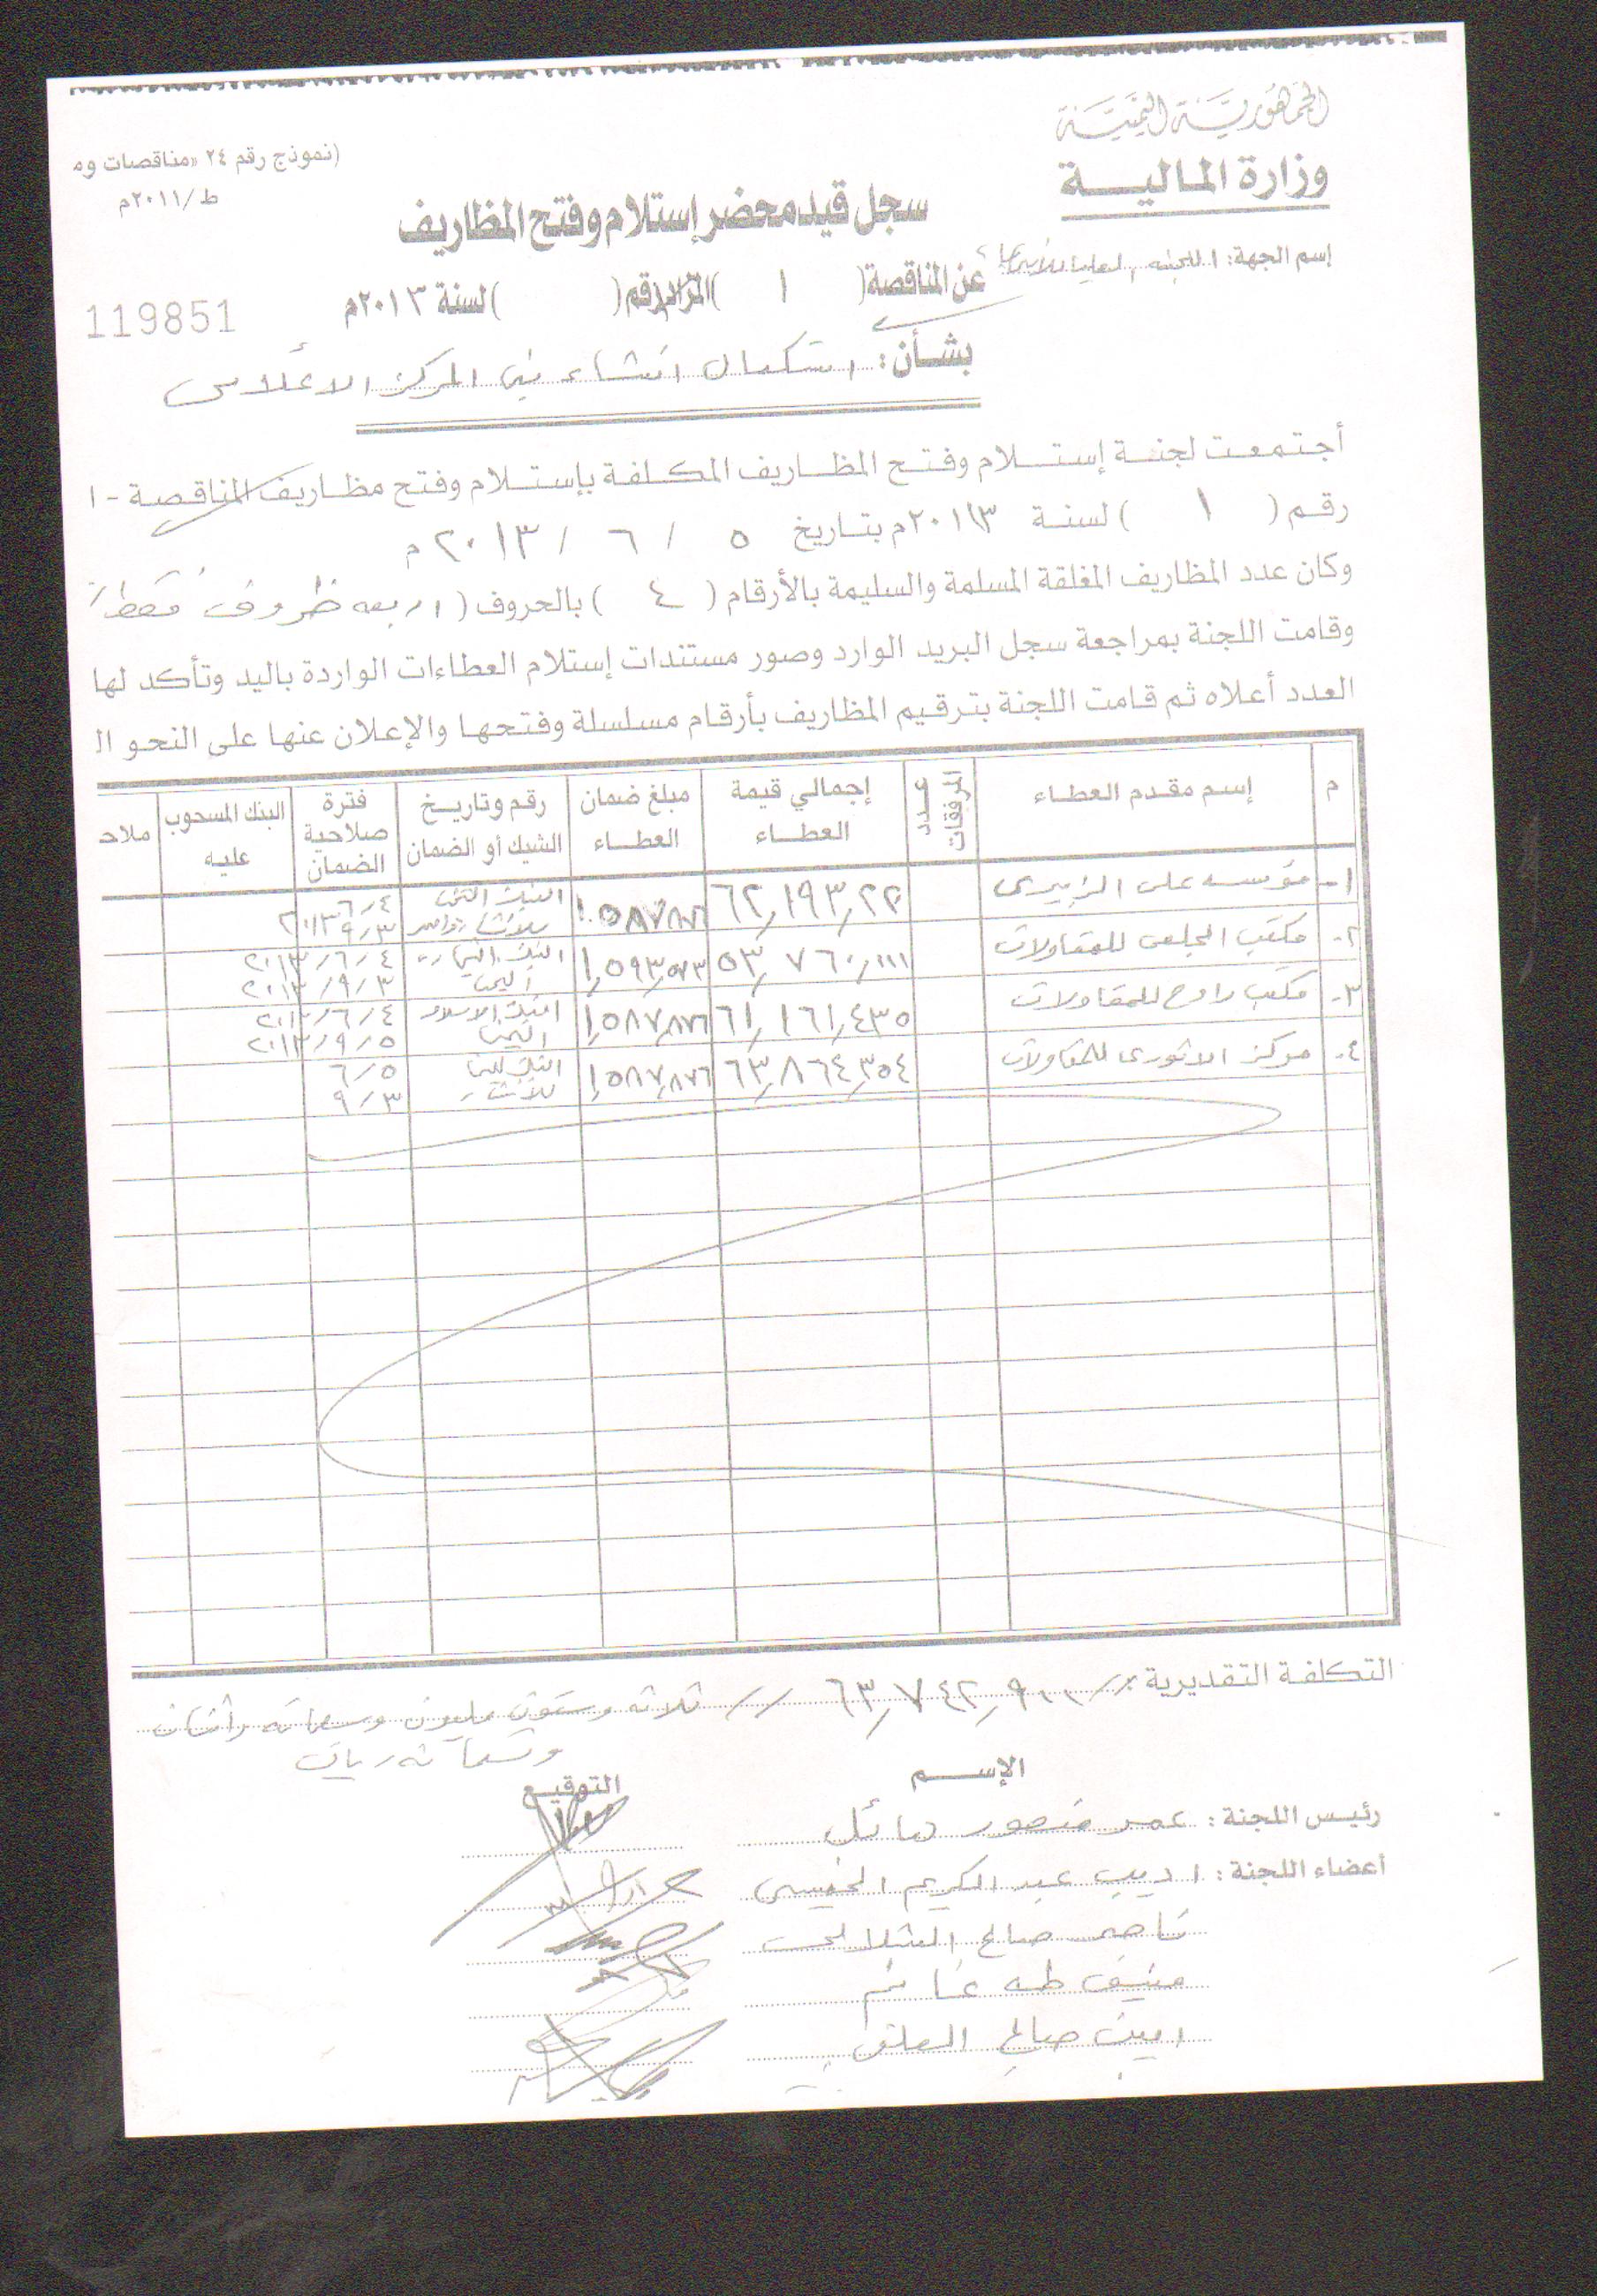 الجمهورية اليمنية
وزارة المالية
(نموذج رقم ٢٤ «مناقصات وم
ط/٢٠١١م
سجل قيد محضر إستلام وفتح المظاريف
إسم الجهة: اللجنه العليا للانتخابات
عن المناقصة ( ١ ) المزاد رقم ( ) لسنة ٢٠١٣م
119851
بشأن: استكمال انشاء مبنى المركز الاعلامي
أجتمعت لجنة إستلام وفتح المظاريف المكلفة بإستلام وفتح مظاريف المناقصة - ا
رقم ( ١ ) لسنة ٢٠١٣م بتاريخ ٥ / ٦ / ٢٠١٣ م
وكان عدد المظاريف المغلقة المسلمة والسليمة بالأرقام ( ٤ ) بالحروف ( اربعه ظروف فقط
وقامت اللجنة بمراجعة سجل البريد الوارد وصور مستندات إستلام العطاءات الواردة باليد وتأكد لها
العدد أعلاه ثم قامت اللجنة بترقيم المظاريف بأرقام مسلسلة وفتحها والإعلان عنها على النحو ال
م إسم مقدم العطاء عدد المرفقات إجمالي قيمة العطاء مبلغ ضمان العطاء رقم وتاريخ الشيك أو الضمان فترة صلاحية الضمان البنك المسحوب عليه ملاح
١- مؤسسه على الزبيرى ٦٢,١٩٣,٢٢ ١,٥٨٧٨٧٦ البنك ٦/٤ ٩/٣ ٢٠١٣
٢- مكتب للمقاولات ٥٣,٧٦٠,١١١ ١,٥٩٣,٥٧٣ البنك التجارى اليمنى ٢٠١٣/٦/٤ ٢٠١٣/٩/٣
٣- مكتب راوح للمقاولات ٦١,١٦١,٤٣٥ ١,٥٨٧,٨٧٦ البنك الاسلامى اليمنى ٢٠١٣/٦/٤ ٢٠١٣/٩/٥
٤- مركز الاثورى للمقاولات ٦٣,٨٦٤,٣٥٤ ١,٥٨٧,٨٧٦ البنك اليمنى للانشاء ٦/٥ ٩/٣
التكلفة التقديرية: // ٦٣,٧٤٢,٩٠٠ // ثلاثه وستون مليون وسبعمائه واثنان
وتسعمائه ريال
الإسم التوقيع
رئيس اللجنة: عمر منصور هائل
أعضاء اللجنة: اديب عبد الكريم
ناصر صالح
منيف طه غانم
امين صالح العلفى